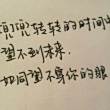 兜兜转转的时间里
望不到未来.
如同望不穿你的眼